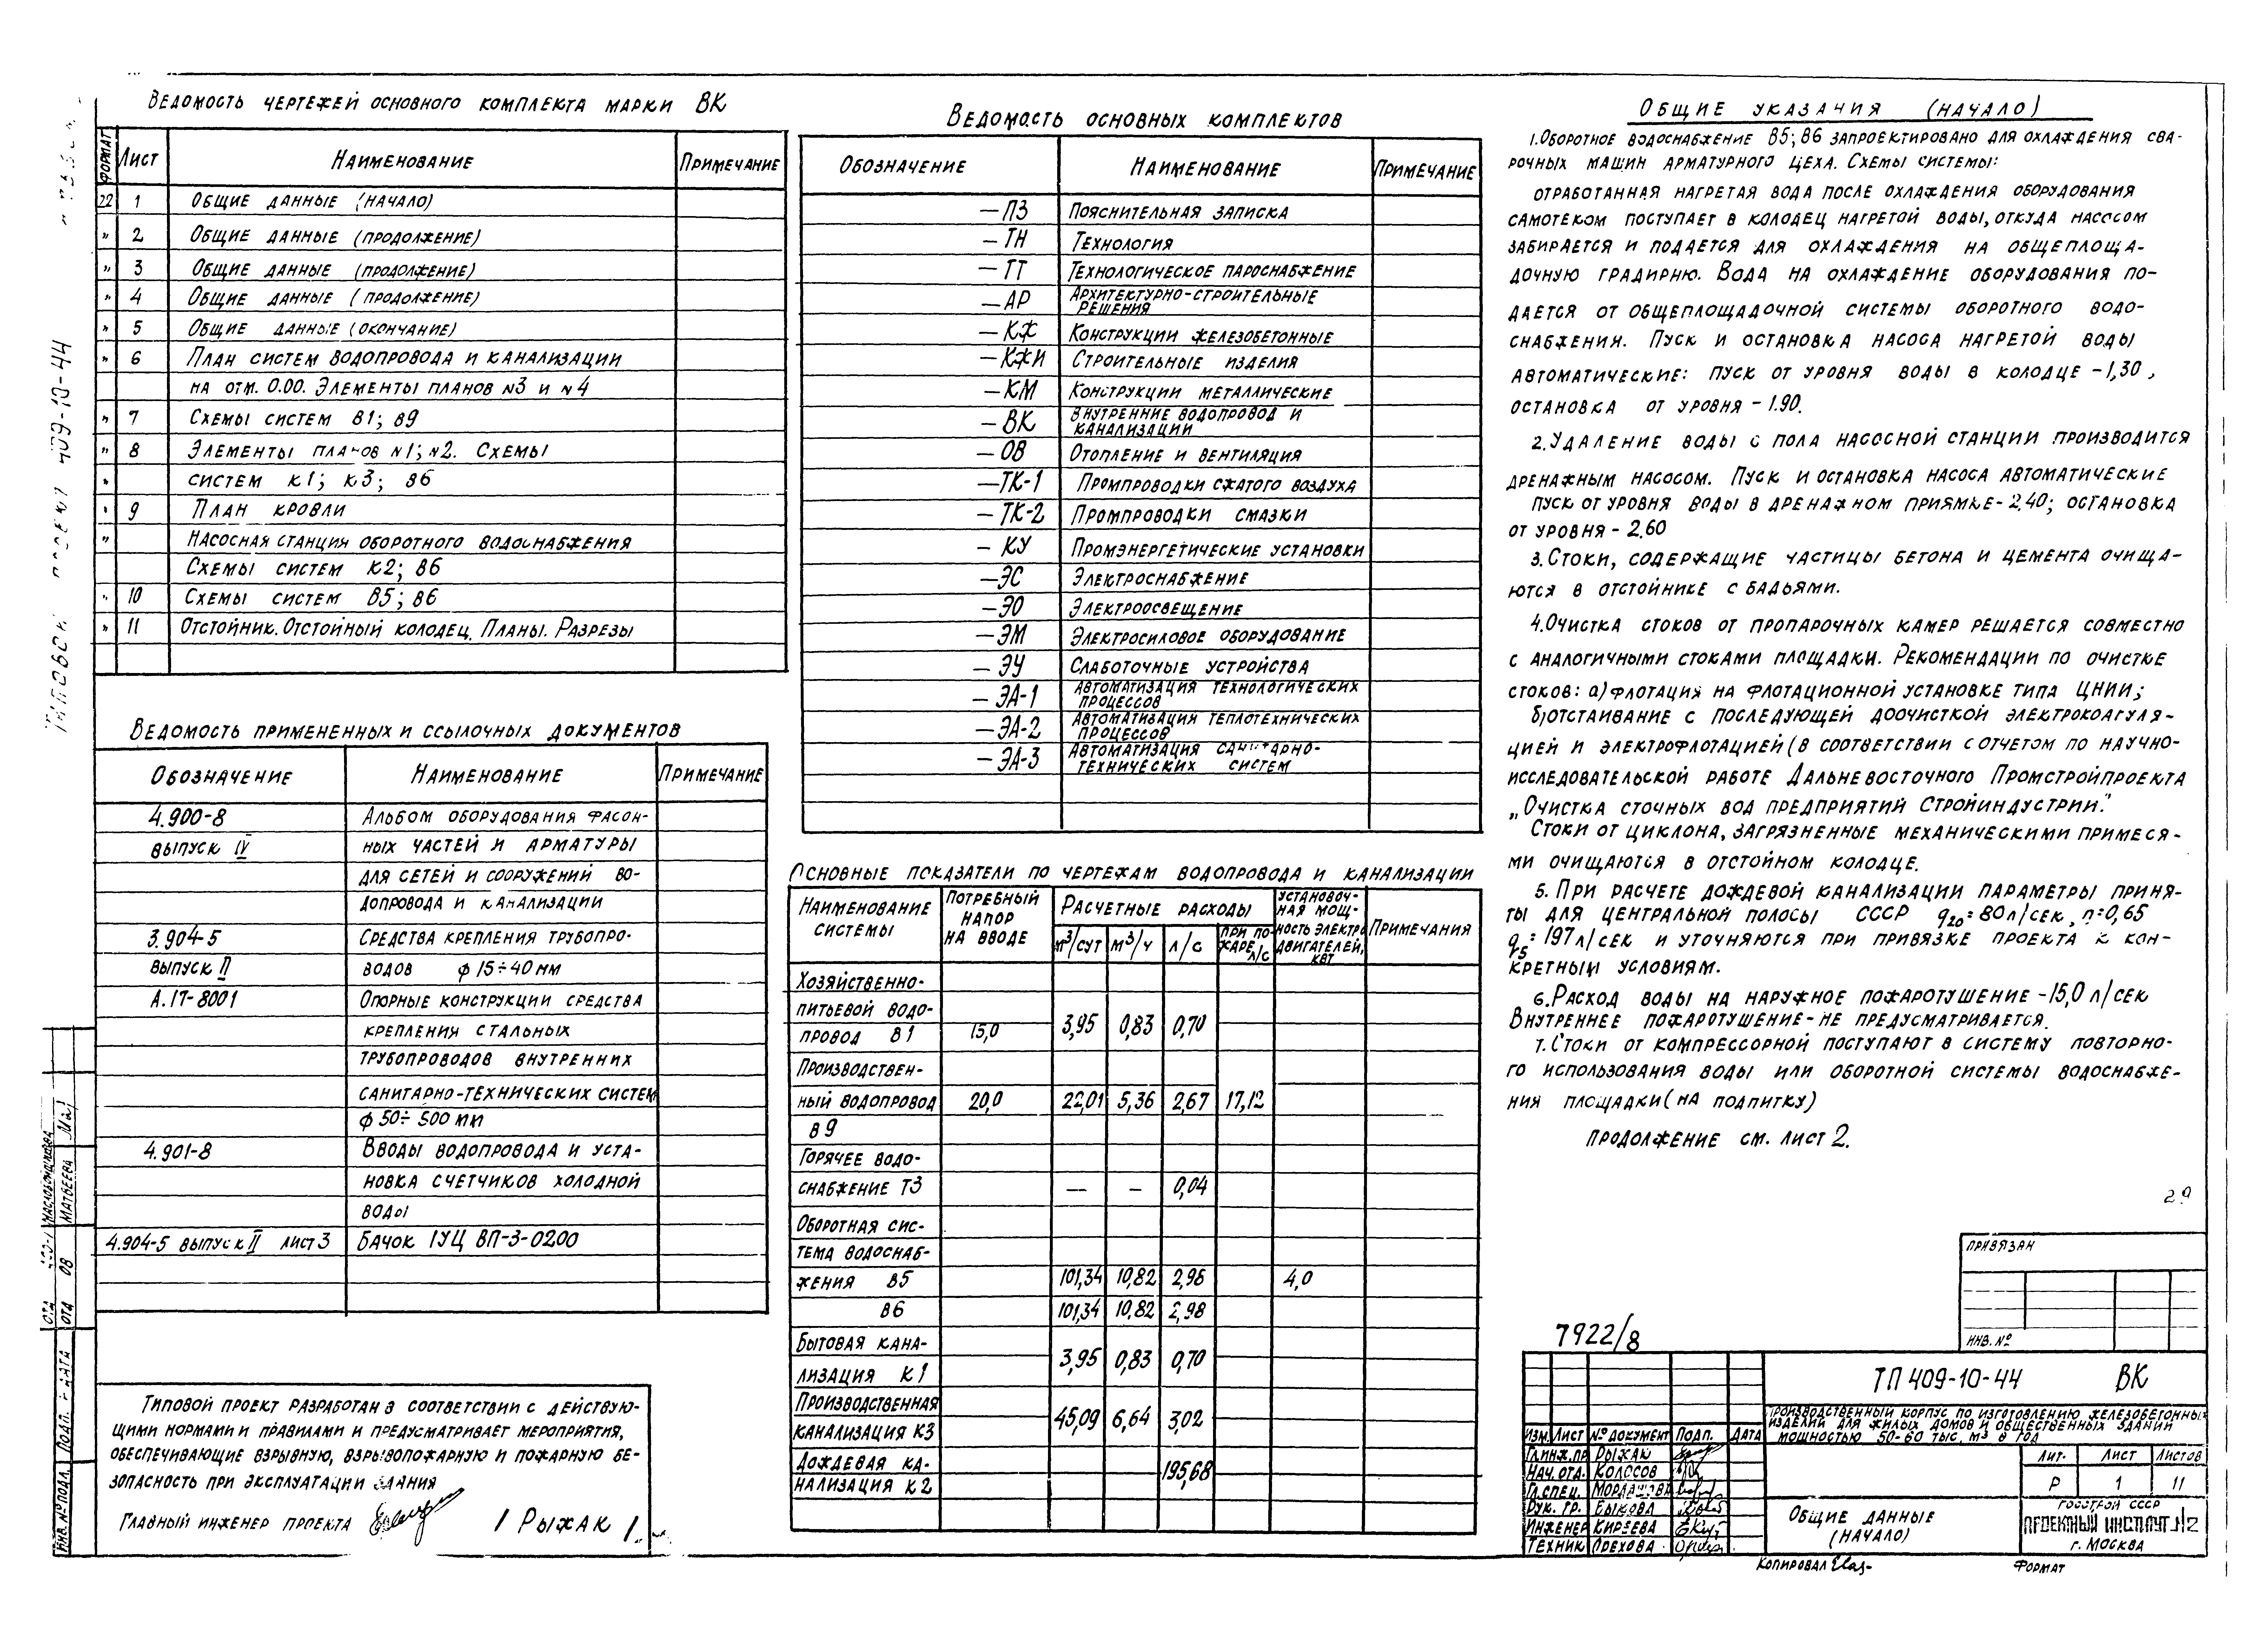 Ведомость чертежей основного комплекта марки ВК
Формат Лист Наименование Примечание
22 1 Общие данные (начало)
" 2 Общие данные (продолжение)
" 3 Общие данные (продолжение)
" 4 Общие данные (продолжение)
" 5 Общие данные (окончание)
" 6 План систем водопровода и канализации
на отм. 0.00. Элементы планов N3 и N4
" 7 Схемы систем В1; В9
" 8 Элементы планов N1; N2. Схемы
" систем К1; К3; В6
" 9 План кровли
" Насосная станция оборотного водоснабжения
Схемы систем К2; В6
" 10 Схемы систем В5; В6
" 11 Отстойник. Отстойный колодец. Планы. Разрезы
Ведомость примененных и ссылочных документов
Обозначение Наименование Примечание
4.900-8 Альбом оборудования фасон-
выпуск IV ных частей и арматуры
для сетей и сооружений во-
допровода и канализации
3.904-5 Средства крепления трубопро-
выпуск II водов ф 15÷40 мм
А.17-8001 Опорные конструкции средства
крепления стальных
трубопроводов внутренних
санитарно-технических систем
ф 50÷500 мм
4.901-8 Вводы водопровода и уста-
новка счетчиков холодной
воды
4.904-5 выпуск II лист 3 Бачок 1УЦ ВП-3-0200
Типовой проект разработан в соответствии с действую-
щими нормами и правилами и предусматривает мероприятия,
обеспечивающие взрывную, взрывопожарную и пожарную бе-
зопасность при эксплуатации здания
Главный инженер проекта / Рыжак /
Ведомасть основных комплектов
Обозначение Наименование Примечание
—ПЗ Пояснительная записка
—ТН Технология
—ТТ Технологическое пароснабжение
—АР Архитектурно-строительные
решения
—КЖ Конструкции железобетонные
—КЖИ Строительные изделия
—КМ Конструкции металлические
—ВК Внутренние водопровод и
канализации
—ОВ Отопление и вентиляция
—ТК-1 Промпроводки сжатого воздуха
—ТК-2 Промпроводки смазки
—КУ Промэнергетические установки
—ЭС Электроснабжение
—ЭО Электроосвещение
—ЭМ Электросиловое оборудование
—ЭУ Слаботочные устройства
—ЭА-1 Автоматизация технологических
процессов
—ЭА-2 Автоматизация теплотехнических
процессов
—ЭА-3 Автоматизация санитарно-
технических систем
Основные показатели по чертежам водопровода и канализации
Наименование системы Потребный напор на вводе Расчетные расходы Установоч-ная мощ-ность электро двигателей, квт Примечания
м³/сут м³/ч л/с при по-жаре л/с
Хозяйственно-
питьевой водо-
провод В1 15,0 3,95 0,83 0,70
Производствен-
ный водопровод 20,0 22,01 5,36 2,67 17,12
В9
Горячее водо-
снабжение Т3 — — 0,04
Оборотная сис-
тема водоснаб-
жения В5 101,34 10,82 2,98 4,0
В6 101,34 10,82 2,98
Бытовая кана-
лизация К1 3,95 0,83 0,70
Производственная
канализация К3 45,09 6,64 3,02
Дождевая ка-
нализация К2 195,68
Общие указания (начало)
1. Оборотное водоснабжение В5; В6 запроектировано для охлаждения сва-
рочных машин арматурного цеха. Схемы системы:
отработанная нагретая вода после охлаждения оборудования
самотеком поступает в колодец нагретой воды, откуда насосом
забирается и подается для охлаждения на общеплоща-
дочную градирню. Вода на охлаждение оборудования по-
дается от общеплощадочной системы оборотного водо-
снабжения. Пуск и остановка насоса нагретой воды
автоматические: пуск от уровня воды в колодце -1,30,
остановка от уровня -1.90.
2. Удаление воды с пола насосной станции производится
дренажным насосом. Пуск и остановка насоса автоматические
пуск от уровня воды в дренажном приямке -2,40; остановка
от уровня -2.60
3. Стоки, содержащие частицы бетона и цемента очища-
ются в отстойнике с бадьями.
4. Очистка стоков от пропарочных камер решается совместно
с аналогичными стоками площадки. Рекомендации по очистке
стоков: а) флотация на флотационной установке типа ЦНИИ;
б) отстаивание с последующей доочисткой электрокоагуля-
цией и электрофлотацией (в соответствии с отчетом по научно-
исследовательской работе Дальневосточного Промстройпроекта
„Очистка сточных вод предприятий Стройиндустрии."
Стоки от циклона, загрязненные механическими примеся-
ми очищаются в отстойном колодце.
5. При расчете дождевой канализации параметры приня-
ты для центральной полосы СССР q20=80 л/сек, n=0,65
q5=197 л/сек и уточняются при привязке проекта к кон-
кретным условиям.
6. Расход воды на наружное пожаротушение -15,0 л/сек
Внутреннее пожаротушение- не предусматривается.
7. Стоки от компрессорной поступают в систему повторно-
го использования воды или оборотной системы водоснабже-
ния площадки (на подпитку)
продолжение см. лист 2.
29
Привязан
Инв. №
7922/8
ТП 409-10-44 ВК
Производственный корпус по изготовлению железобетонных
изделий для жилых домов и общественных зданий
мощностью 50-60 тыс. м³ в год
Изм. Лист № документ Подп. Дата
Гл.инж.пр Рыжак
Нач. отд. Колосов
Гл.спец.
Рук. гр. Быкова
Инженер Киреева
Техник Орехова
Лит. Лист Листов
Р 1 11
Общие данные
(начало)
Госстрой СССР
Проектный институт №2
г. Москва
Копировал
Формат
Типовой проект 409-10-44
Матвеева
Инв. № подл. Подп. и дата